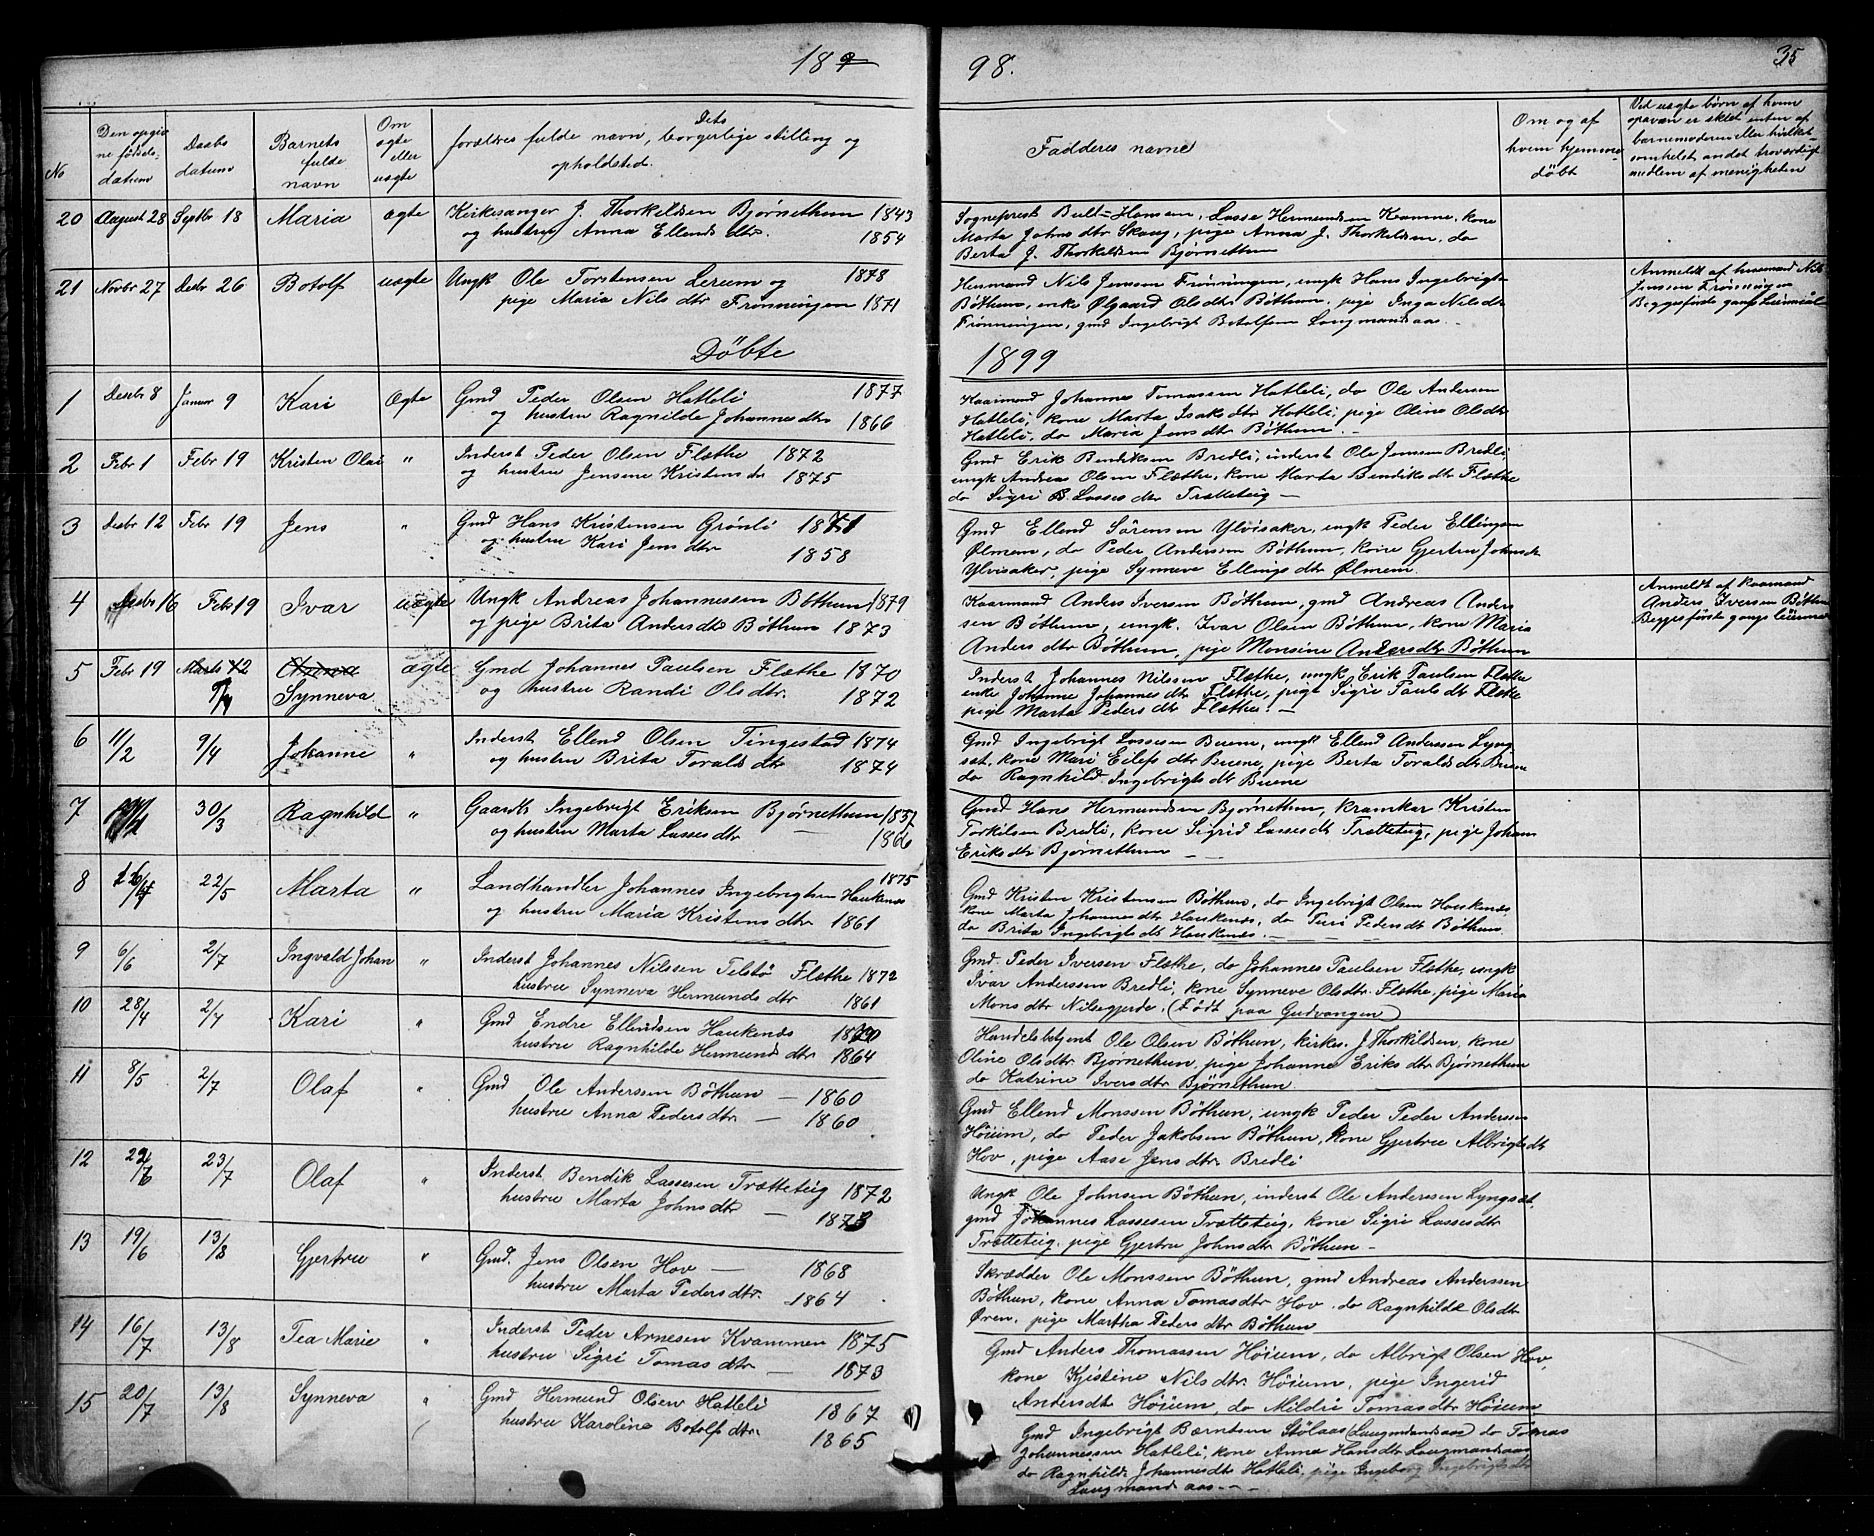 18
98.
35
No
Den opgiv
ne fødsels-
datum
Daabs
datum
Barnets
fulde
navn
Om
ægte
eller
uægte
Dets
forældres fulde navn, borgerlige stilling og
opholdsted.
Fadderes navne
Om og af
hvem hjemme-
døbt
Ved uægte børn af hvem
opgaven er skeet enten af
barnemoderen eller hvilket-
somhelst andet troværdigt
medlem af menigheden
20 August 28 Septbr 18 Maria ægte Kirkesanger J. Thorkildsen Bjørnethun 1843
og hustru Anna Ellends dtr. 1854
Sogneprest Bull-Hansen, Lasse Hermundsen Kvamme, kone
Marta Johns dtr Skaug, pige Anna J. Thorkildsen, do
Berta J. Thorkildsen Bjørnethun
21 Novbr 27 Desbr 26 Botolf uægte Ungk Ole Torstensen Lerum og 1878
pige Maria Nils dtr Frønningen 1871
Husmand Nils Jenssen Frønningen, ungk Hans Ingebrigts
Bøthun, enke Ølgaard Ols dtr Bøthun, pige Inga Nils dtr
Frønningen, gmd Ingebrigt Botolfsen Laugmandsaas.
Anmeldt af husmand Nils
Jenssen Frønningen
Begges første gangs leiermaal
Døbte
1899
1 Desbr 8 Januar 9 Kari Ægte Gmd Peder Olsen Hatleli 1877
og hustru Ragnilde Johannes dtr 1866
Kaarmand Johannes Tomassen Hatleli, do Ole Andersen
Hatleli, kone Marta Isaks dtr Hatleli, pige Oline Ols dtr
Hatleli, do Maria Jens dtr Bøthun.
2 Febr 1 Febr 19 Kristen Olai " Inderst Peder Olsen Flæthe 1872
og hustru Jensine Kristens dr 1875
Gmd Erik Bendiksen Bredli, inderst Ole Jonsen Bredli,
ungk Andreas Olsen Flæthe, kone Marta Bendiks dtr Flæthe
do Sigri B. Lasses dtr Trætteteig —
3 Desbr 12 Febr 19 Jens " Gmd Hans Kristensen Grønli 1871
og hustru Kari Jens dtr 1858
Gmd Ellend Sørensen Ylvisaker, ungk Peder Ellingsen
Ølmeim, do Peder Andersen Bøthun, kone Gjertru Johnsdtr
Ylvisaker, pige Synneva Ellings dtr Ølmeim.
4 Desbr 16 Febr 19 Ivar uægte Ungk Andreas Johannessen Bøthun 1879
og pige Brita Anders dtr Bøthun 1873
Kaarmand Anders Iversen Bøthun, gmd Andreas Anders
sen Bøthun, ungk. Ivar Olsen Bøthun, kone Maria
Anders dtr Bøthun, pige Monsine Anders dtr Bøthun
Anmeldt af kaarmand
Anders Iversen Bøthun
Begges første gangs leierm
5 Febr 19 Marts 12 ægte Gmd Johannes Paulsen Flæthe 1870
9/4 Synneva og hustru Randi Ols dtr. 1872
Inderst Johannes Nilssen Flæthe, ungk Erik Paulsen Flæthe
enke Johanne Johannes dtr Flæthe, pige Sigri Pauls dtr Flæthe
pige Marta Peders dtr Flæthe. —
6 11/2 9/4 Johanne " Inderst Ellend Olsen Tingestad 1874
og hustru Brita Toralds dtr 1874
Gmd Ingebrigt Lassesen Buene, ungk Ellend Anderssen Lyng
sæt, kone Mari Eilefs dtr Buene, pige Berta Toralds dtr Buene
do Ragnhild Ingebrigts dtr Buene
7 30/3 Ragnhild " Gaardb Ingebrigt Eriksen Bjørnethun 1857
og hustru Marta Lasses dtr — 1866
Gmd Hans Hermundsen Bjørnethun, kramkar Kristen
Torkilsen Bredli, kone Sigrid Lasses dtr Trætteteig, pige Johan
Eriks dtr Bjørnethun —
8 22/5 Marta " Landhandler Johannes Ingebrigtsen Haukenæs 1875
og hustru Maria Kristens dtr 1861
Gmd Kristen Kristensen Bøthun, do Ingebrigt Olsen Haukenæs
kone Marta Johannes dtr Haukenæs, do Turi Peders dtr Bøthun
do Brita Ingebrigts dtr Haukenæs.
9 6/6 2/7 Ingvald Johan " Inderst Johannes Nilssen Telstø Flæthe 1872
hustru Synneva Hermunds dtr 1861
Gmd. Peder Iversen Flæthe, do Johannes Paulsen Flæthe, ungk
Ivar Anderssen Bredli, kone Synneve Olsdtr. Flæthe, pige Maria
Mons dtr Nilsegjerde. (Født paa Gudvangen)
10 28/4 2/7 Kari " Gmd Endre Ellendsen Haukenæs 1870
hustru Ragnhilde Hermunds dtr 1864
Handelsbetjent Ole Olsen Bøthun, kirkes. J Thorkildsen, kone
Oline Ols dtr Bjørnethun, pige Johanne Eriks dtr Bjørnethun
do Katrine Ivers dtr Bjørnethun
11 8/5 2/7 Olaf " Gmd Ole Anderssen Bøthun — 1860
hustru Anna Peders dtr — 1860
Gmd Ellend Monssen Bøthun, ungk Peder Peder Anderssen
Høium, do Peder Jakobsen Bøthun, kone Gjertru Albrigts dtr
Hov, pige Aase Jens dtr Bredli
12 22/6 23/7 Olaf " Inderst Bendik Lassesen Trætteteig 1872
hustru Marta Johns dtr — 1873
Ungk Ole Johnsen Bøthun, inderst Ole Anderssen Lyngsæt,
gmd Johannes Lassesen Trætteteig, kone Sigri Lasses dtr
Trætteteig, pige Gjertru Johns dtr Bøthun —
13 19/6 13/8 Gjertru " Gmd. Jens Olsen Hov — 1868
hustru Marta Peders dtr. 1864
Skrædder Ole Monssen Bøthun, gmd Andreas Anderssen
Bøthun, kone Anna Tomas dtr Hov, do Ragnhilde Ols dtr
Øren, pige Martha Peders dtr Bøthun
14 16/7 13/8 Tea Marie " Inderst Peder Arnesen Kvammen 1875
hustru Sigri Tomas dtr — 1873
Gmd Anders Thomassen Høium, do Albrigt Olsen Hov,
kone Kjistine Nils dtr Høium, pige Ingerid
Anders dtr Høium, do Mildri Tomas dtr Høium
15 20/7 13/8 Synneva " Gmd Hermund Olsen Hatleli 1867
hustru Karoline Botolfs dtr. 1865
Gmd Ingebrigt Bærntsen Stølaas (Laugmandsaas) do Tomas
Johannessen Hatleli, kone Anna Hans dtr Laugmandsaas
do Ragnhilde Johannes dtr Hatleli, pige Ingeborg Ingebrigts dtr
Laugmandsaas. —